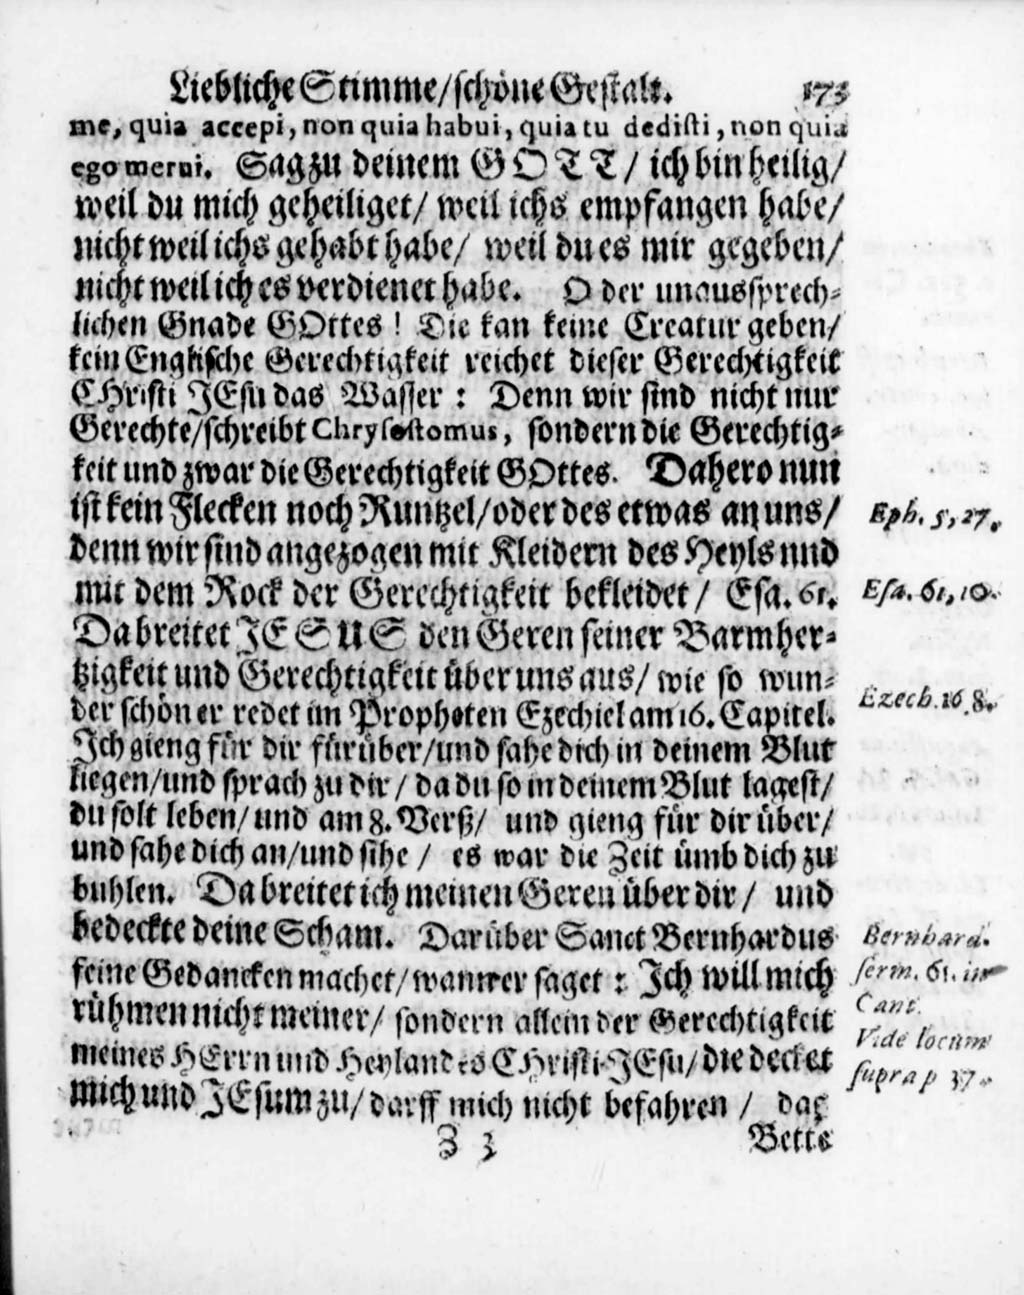 Liebliche Stimme/schöne Gestalt. 173
me, quia accepi, non quia habui, quia tu dedisti, non quia
ego merui. Sag zu deinem GOTT/ ich bin heilig/
weil du mich geheiliget/ weil ichs empfangen habe/
nicht weil ichs gehabt habe/ weil du es mir gegeben/
nicht weil ich es verdienet habe. O der unaussprech-
lichen Gnade GOttes! Die kan keine Creatur geben/
kein Englische Gerechtigkeit reichet dieser Gerechtigkeit
CHristi JEsu das Wasser: Denn wir sind nicht nur
Gerechte/schreibt Chrysostomus, sondern die Gerechtig-
keit und zwar die Gerechtigkeit GOttes. Dahero nun
ist kein Flecken noch Runtzel/oder des etwas an uns/
Eph. 5, 27.
denn wir sind angezogen mit Kleidern des Heyls und
mit dem Rock der Gerechtigkeit bekleidet/ Esa. 61.
Esa. 61, 10.
Da breitet JESUS den Geren seiner Barmher-
tzigkeit und Gerechtigkeit über uns aus/ wie so wun-
der schön er redet im Propheten Ezechiel am 16. Capitel.
Ezech. 16, 8.
Ich gieng für dir fürüber/und sahe dich in deinem Blut
liegen/und sprach zu dir/ da du so in deinem Blut lagest/
du solt leben/ und am 8. Verß/ und gieng für dir über/
und sahe dich an/und sihe/ es war die Zeit ümb dich zu
buhlen. Da breitet ich meinen Geren über dir/ und
bedeckte deine Scham. Darüber Sanct Bernhardus
seine Gedancken machet/wann er saget: Ich will mich
rühmen nicht meiner/ sondern allein der Gerechtigkeit
meines HErrn und Heylandes CHristi JEsu/ die decket
mich und JEsum zu/ darff mich nicht befahren/ das
Bernhard.
serm. 61. in
Cant.
Vide locum
supra p 37.
Z 3 Bette